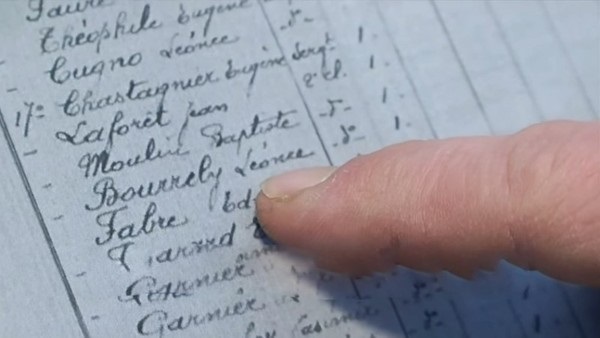 Faure
Théophile Eugène -d°-
Cugno Léonce -d°-
17e Chastagnier Eugène Sergt 1.
Laforêt jean 2e cl. 1.
Moulin Baptiste -d°- 1.
Bourrely Léonce -d°- 1.
Fabre
Garnier
Garnier -d°-
Casimir -d°- 1